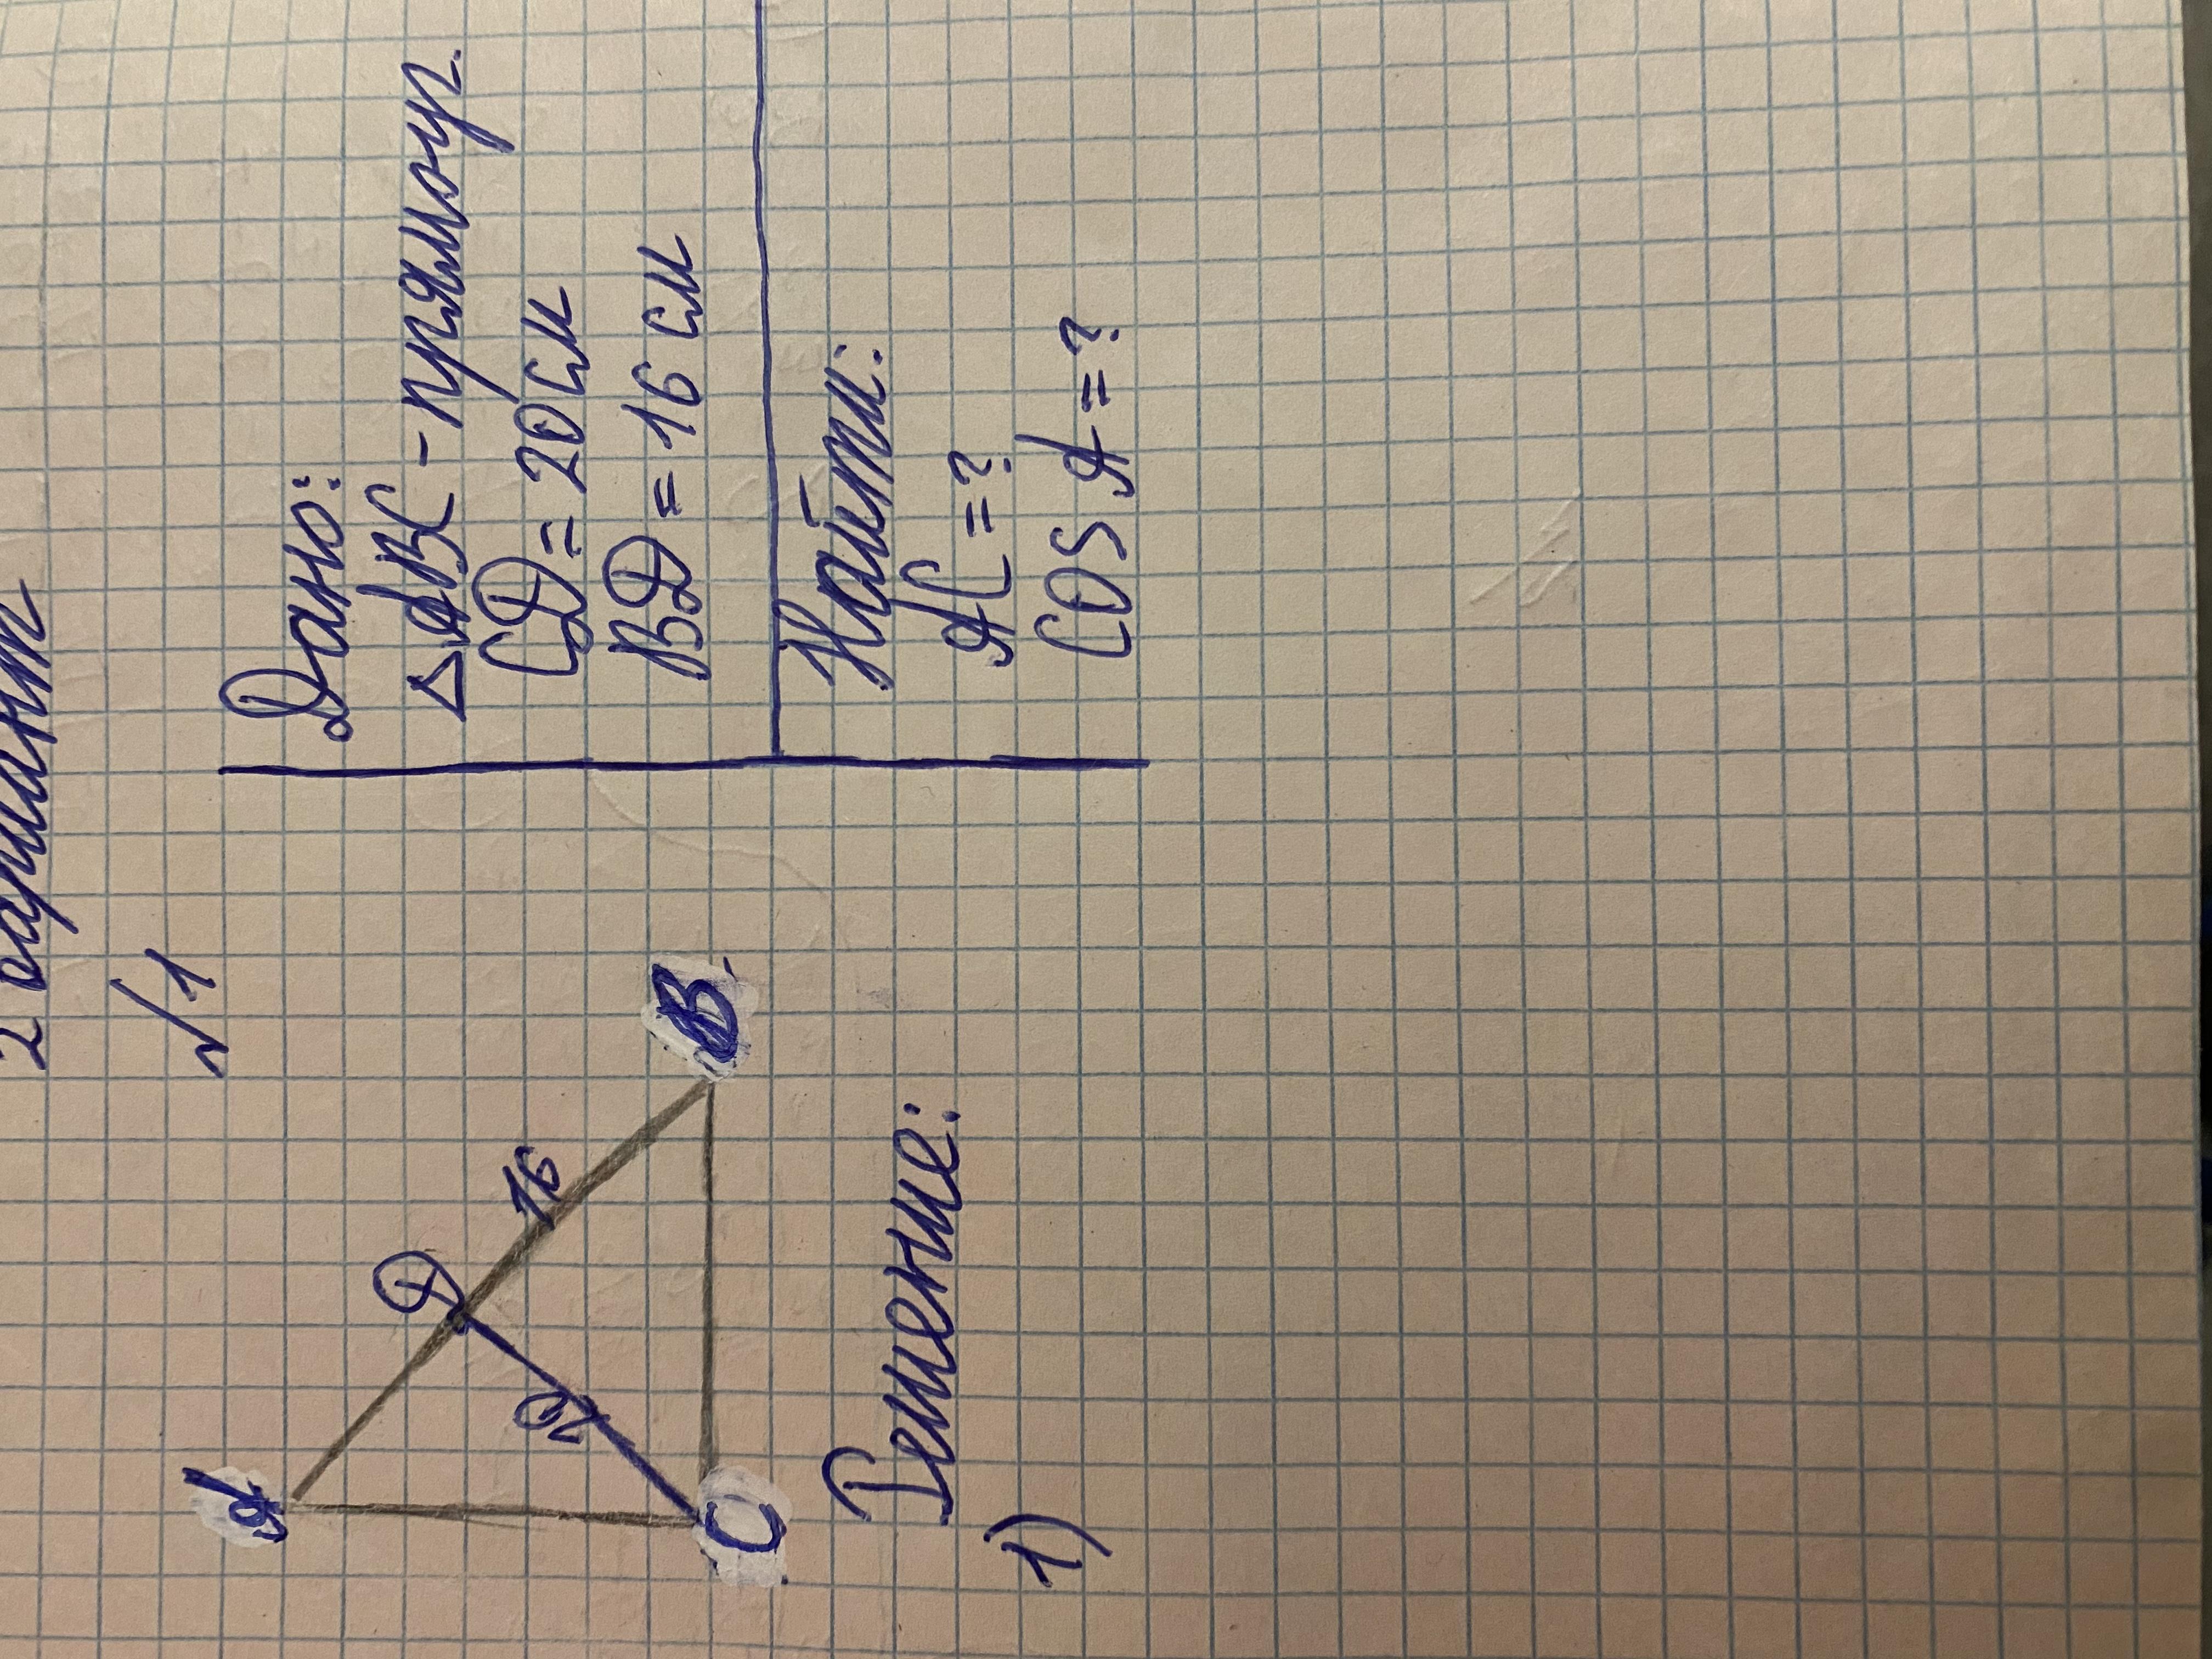 2 вариант
№1
A
D
16
2
C
B
Дано:
△ABC - прямоуг.
CD = 20 см
BD = 16 см
Найти:
AC = ?
cos A = ?
Решение:
1)